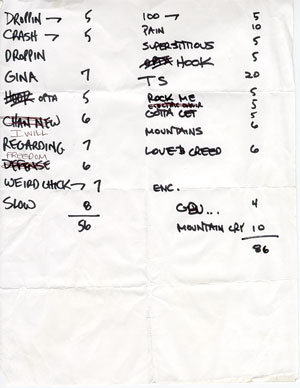 DROPPIN → 5
CRASH → 5
DROPPIN
GINA 7
OPTA 5
CHAN NEW 6
I WILL
REGARDING 7
FREEDOM
DEFENSE 6
WEIRD CHICK → 7
SLOW 8
56
100 → 5
PAIN 10
SUPERSTITIOUS 5
HOOK 5
TS 20
ROCK ME 5
ELECTRIC CHAIR 5
GOTTA GET 5
MOUNTAINS 6
LOVE'S CREED 6
ENC.
... 4
MOUNTAIN CRY 10
86